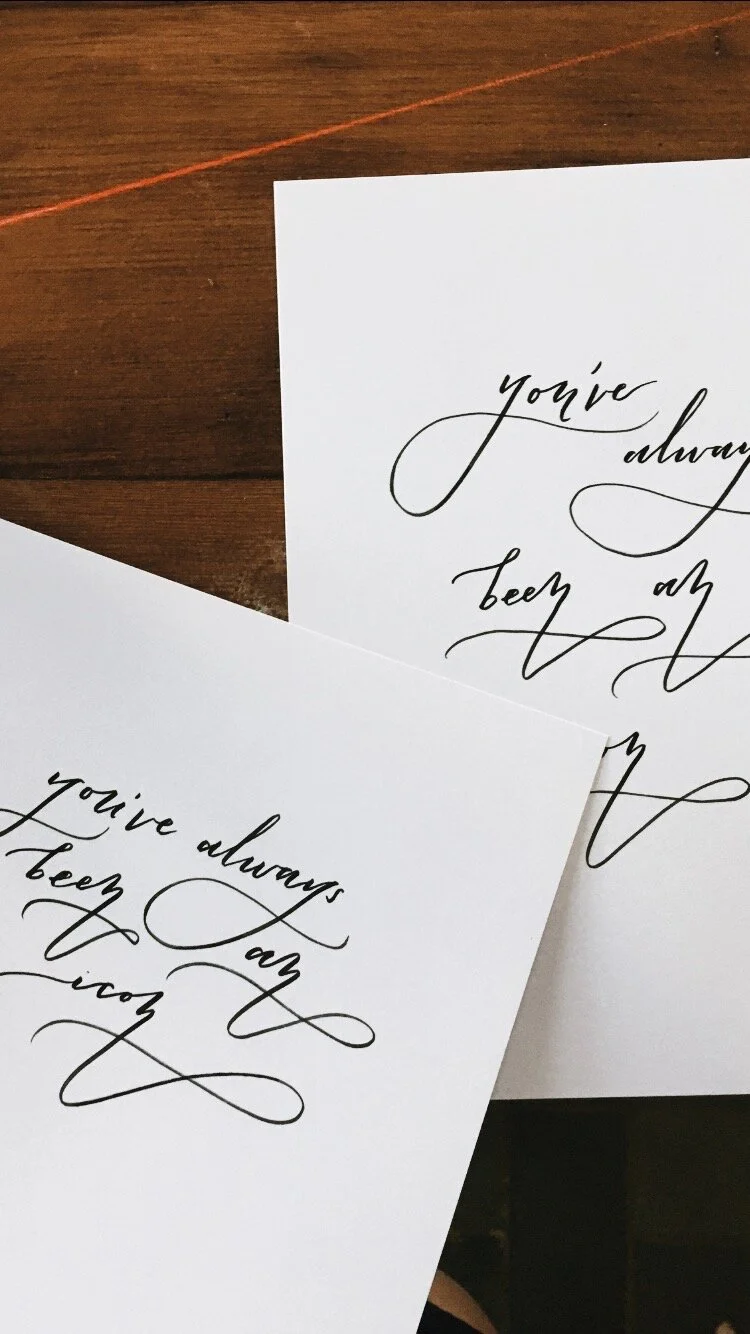 you've
alway
been an
on
you've always
been an
icon